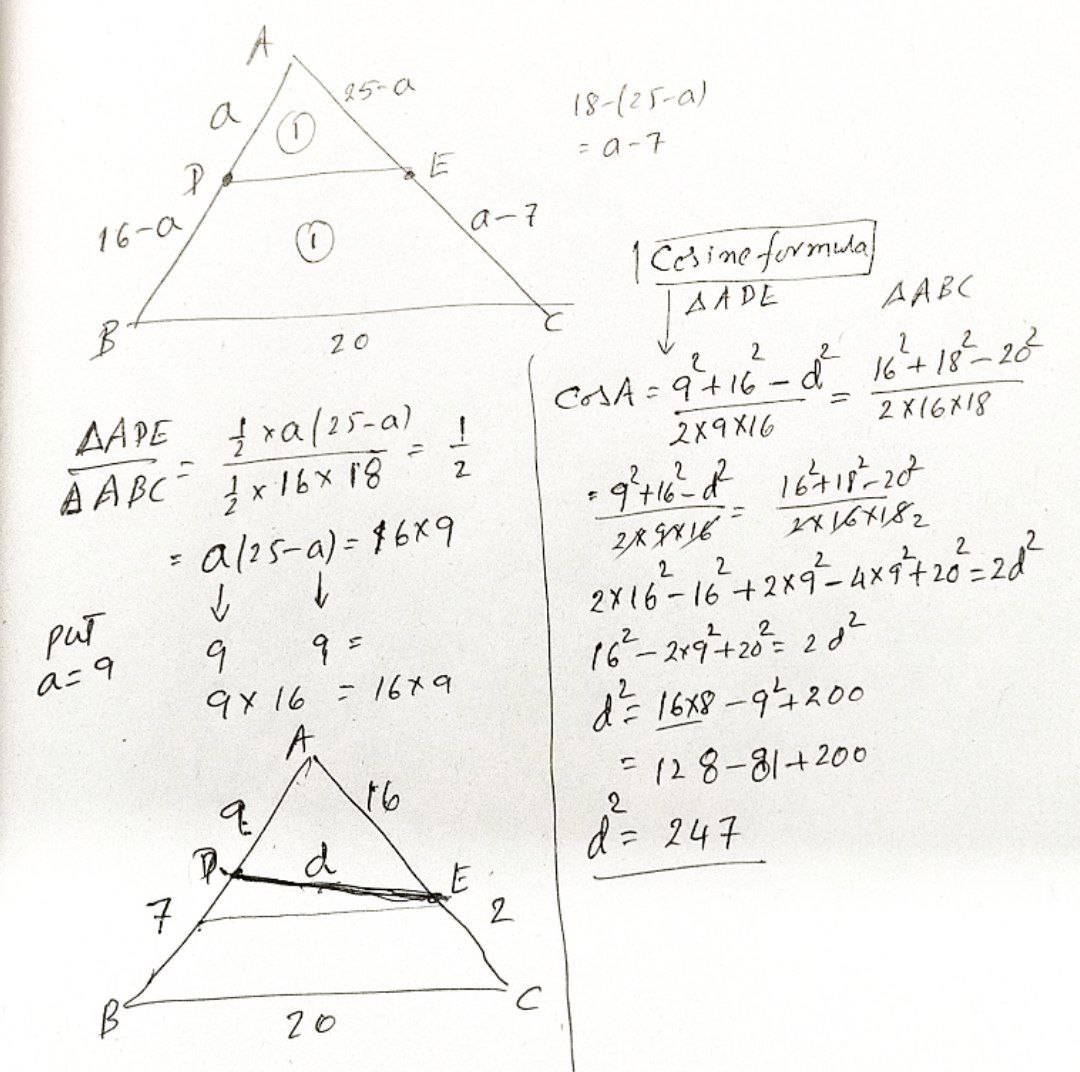 A
a
25-a
①
D
E
16-a
①
a-7
B
20
C
18-(25-a)
= a-7
Cosine formula
ΔADE
ΔABC
ΔADE/ΔABC = (½ × a(25-a))/(½ × 16 × 18) = 1/2
= a(25-a) = 16×9
↓ ↓
put
a=9
9 9 =
9×16 = 16×9
A
9
16
D
d
E
7
2
B
20
C
CosA = (9²+16²-d²)/(2×9×16) = (16²+18²-20²)/(2×16×18)
= (9²+16²-d²)/(2×9×16) = (16²+18²-20²)/(2×16×18) 2
2×16²-16²+2×9²-4×9²+20²=2d²
16²-2×9²+20²= 2d²
d²= 16×8-9²+200
= 128-81+200
d²= 247